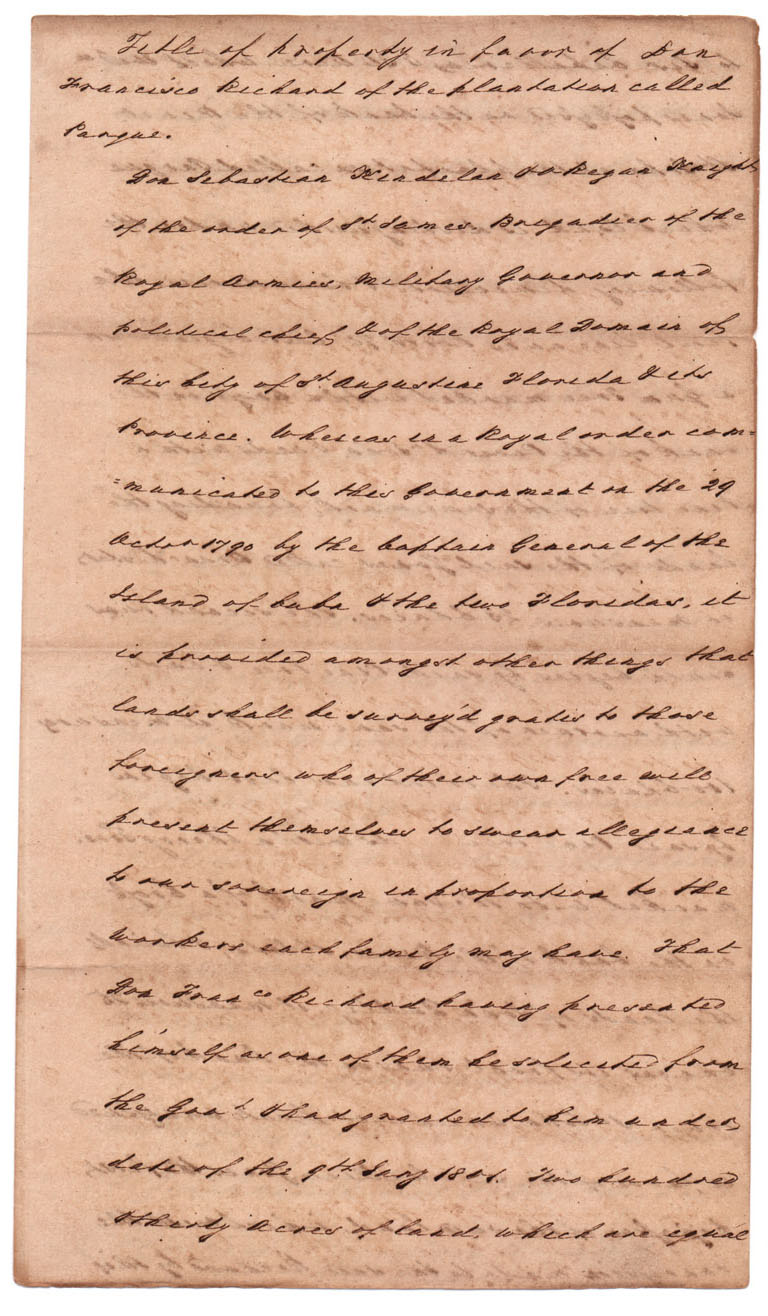 Title of property in favor of Don
Francisco Richard of the plantation called
Parque.
Don Sebastian Kindelan & O Regan Knight
of the order of St. James. Brigadier of the
Royal Armies, Military Governor and
political chief & of the Royal Domain of
this City of St. Augustine Florida & its
Province. Whereas in a Royal order com=
=municated to this Government on the 29
Octor 1790 by the Captain General of the
Island of Cuba & the two Floridas, it
is provided amongst other things that
lands shall be survey'd gratis to those
foreigners who of their own free will
present themselves to swear allegiance
to our sovereign in proportion to the
workers each family may have. That
Don Franco Richard having presented
himself as one of them he solicated from
the Govt. & had granted to him under
date of the 9th Jany 1801. Two hundred
& thirty Acres of land, which are equal